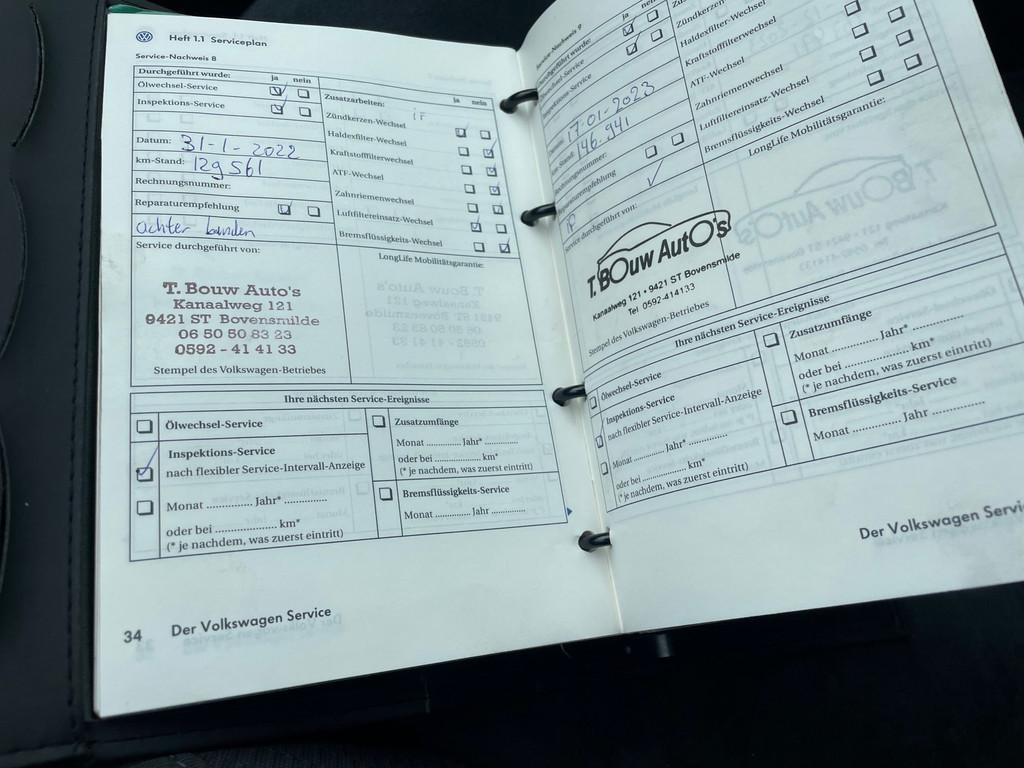 Heft 1.1 Serviceplan
Service-Nachweis 8
Durchgeführt wurde: ja nein
Ölwechsel-Service
Inspektions-Service
Datum: 31-1-2022
km-Stand: 129561
Rechnungsnummer:
Reparaturempfehlung
achter banden
Service durchgeführt von:
T. Bouw Auto's
Kanaalweg 121
9421 ST Bovensmilde
06 50 50 83 23
0592 - 41 41 33
Stempel des Volkswagen-Betriebes
Zusatzarbeiten: ja nein
Zündkerzen-Wechsel
Haldexfilter-Wechsel
Kraftstofffilterwechsel
ATF-Wechsel
Zahnriemenwechsel
Luftfiltereinsatz-Wechsel
Bremsflüssigkeits-Wechsel
LongLife Mobilitätsgarantie:
Ihre nächsten Service-Ereignisse
Ölwechsel-Service
Inspektions-Service
nach flexibler Service-Intervall-Anzeige
Monat .............. Jahr* ..............
oder bei .................... km*
(* je nachdem, was zuerst eintritt)
Zusatzumfänge
Monat ........... Jahr* .............
oder bei .................. km*
(* je nachdem, was zuerst eintritt)
Bremsflüssigkeits-Service
Monat ........... Jahr .............
34 Der Volkswagen Service
Service-Nachweis 9
ja
17-01-2023
146.941
Rechnungsnummer:
Service durchgeführt von:
T. Bouw Auto's
Kanaalweg 121 • 9421 ST Bovensmilde
Tel 0592-414133
Stempel des Volkswagen-Betriebes
Zündkerzen
Haldexfilter-Wechsel
Kraftstofffilterwechsel
ATF-Wechsel
Zahnriemenwechsel
Luftfiltereinsatz-Wechsel
Bremsflüssigkeits-Wechsel
LongLife Mobilitätsgarantie:
Ihre nächsten Service-Ereignisse
Ölwechsel-Service
Inspektions-Service
nach flexibler Service-Intervall-Anzeige
Monat .............. Jahr* ..............
oder bei .................... km*
(* je nachdem, was zuerst eintritt)
Zusatzumfänge
Monat .............. Jahr* ..............
oder bei .................... km*
(* je nachdem, was zuerst eintritt)
Bremsflüssigkeits-Service
Monat .............. Jahr ..............
Der Volkswagen Servi